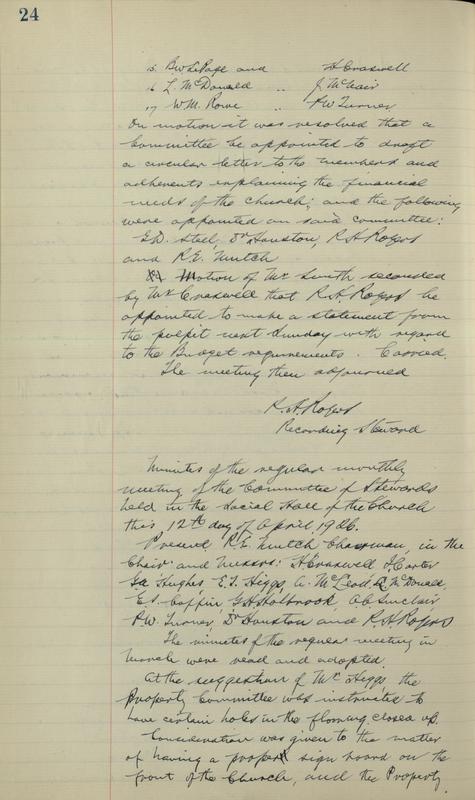 24
15 BW LePage and H Craswell
16 L. McDonald " J McNair
17 W.M. Rowe " P.W Turner
On motion it was resolved that a
Committee be appointed to draft
a circular letter to the members and
adherents explaining the financial
needs of the church; and the following
were appointed on said committee:
G.D. Steel, Dr Houston, R H Rogers
and R.E. Mutch
Motion of Mr Smith seconded
by Mr Craswell that R.H. Rogers be
appointed to make a statement from
the pulpit next Sunday with regard
to the Budget requirements. Carried.
The meeting then adjourned
R.H. Rogers
Recording Steward
Minutes of the regular monthly
meeting of the Committee of Stewards
held in the Social Hall of the Church
this 12th day of April 1926.
Present, R.E. Mutch Chairman, in the
Chair and Messrs: H Craswell J. Carter
Ga Hughes, E.T. Higgs, A. McLeod, McDonald,
E.S. Coffin, G.H. Holbrook, Sinclair
P.W. Turner, Dr Houston and R.H Rogers
The minutes of the regular meeting in
March were read and adopted.
At the suggestion of Mr Higgs the
Property Committee was instructed to
have certain holes in the flooring closed up.
Consideration was given to the matter
of having a proper sign board on the
front of the Church, and the Property